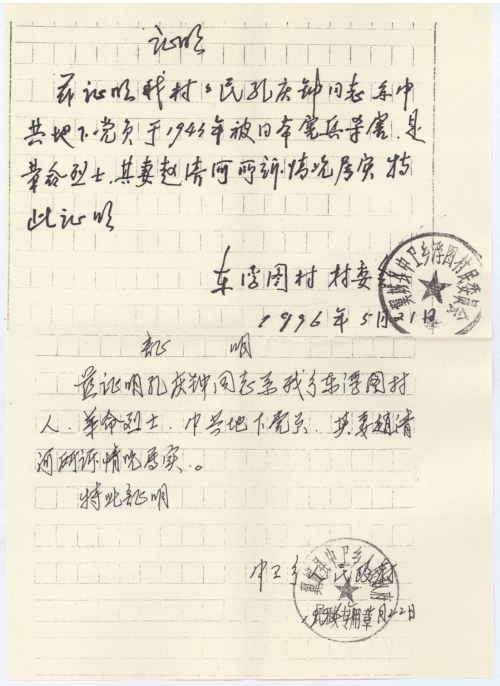 证明
兹证明我村村民孔庆钟同志系中
共地下党员于1943年被日本宪兵杀害.是
革命烈士.其妻赵清河所诉情况属实特
此证明
东浮图村 村委会
1996年5月21日
证 明
兹证明孔庆钟同志系我乡东浮图村
人.革命烈士.中共地下党员.其妻赵清
河所诉情况属实。
特此证明
中卫乡 民政
月22日